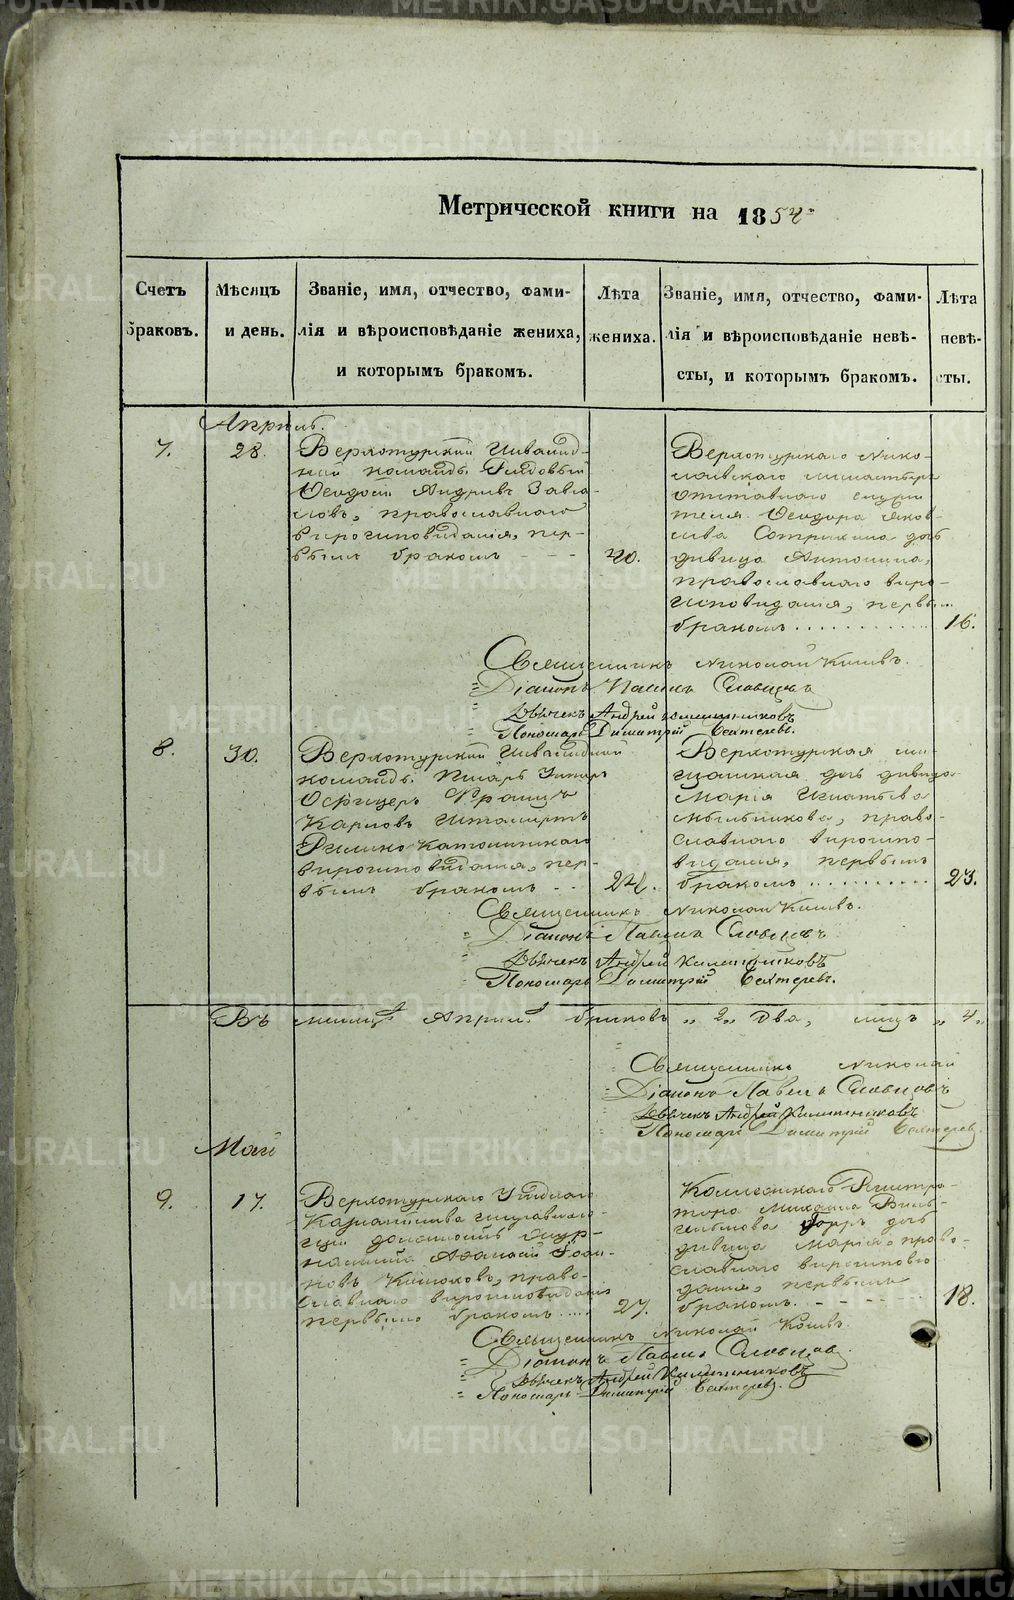 Метрической книги на 1854
Счетъ браковъ.
Мѣсяцъ и день.
Званіе, имя, отчество, фами-
лія и вѣроисповѣданіе жениха,
и которымъ бракомъ.
Лѣта
жениха.
Званіе, имя, отчество, фами-
лія и вѣроисповѣданіе невѣ-
сты, и которымъ бракомъ.
Лѣта
невѣ-
сты.
Апрѣль.
7.
28.
Верхотурской Инвалид-
ной команды Рядовый
Ѳеодосій Андреевъ
православнаго
вѣроисповѣданія, пер-
вымъ бракомъ
20.
Верхотурскаго Нико-
лаевскаго монастыря
отставнаго служи
теля Ѳеодора Яков-
лева дочь
дѣвица Антонина,
православнаго вѣро-
исповѣданія, первым
бракомъ
16.
Священникъ Николай
Діаконъ Павелъ Словцовъ
Дьячекъ Андрей Калашниковъ
Пономарь Димитрій Бехтеревъ.
8.
30.
Верхотурской Инвалидной
команды Писарь Унтеръ
Офицеръ Францъ
Карловъ
Римско Католическаго
вѣроисповѣданія, пер-
вымъ бракомъ
24.
Верхотурская мѣ-
щанская дочь дѣвица
Марія Игнатьева
Мыльникова, право-
славнаго вѣроиспо-
вѣданія, первымъ
бракомъ
23.
Священникъ Николай
Діаконъ Павелъ Словцовъ
Дьячекъ Андрей Калашниковъ
Пономарь Димитрій Бехтеревъ.
Въ мѣсяцѣ Апрѣлѣ браковъ „2„ два, лицъ „4„
Священникъ Николай
Діаконъ Павелъ Словцовъ
Дьячекъ Андрей Калашниковъ
Пономарь Димитрій Бехтеревъ
Май
9.
17.
Верхотурскаго Уѣзднаго
Казначейства исправляю-
щій должность Жур-
налиста Аѳанасій Іоан-
новъ право-
славнаго вѣроисповѣданія
первымъ бракомъ
27.
Коллежскаго Регистра-
тора Михаила Виль-
гельмова дочь
дѣвица Марія, право-
славнаго вѣроисповѣ
данія, первымъ
бракомъ.
18.
Священникъ Николай
Діаконъ Павелъ Словцовъ
Дьячекъ Андрей Калашниковъ
Пономарь Димитрій Бехтеревъ.
METRIKI.GASO-URAL.RU